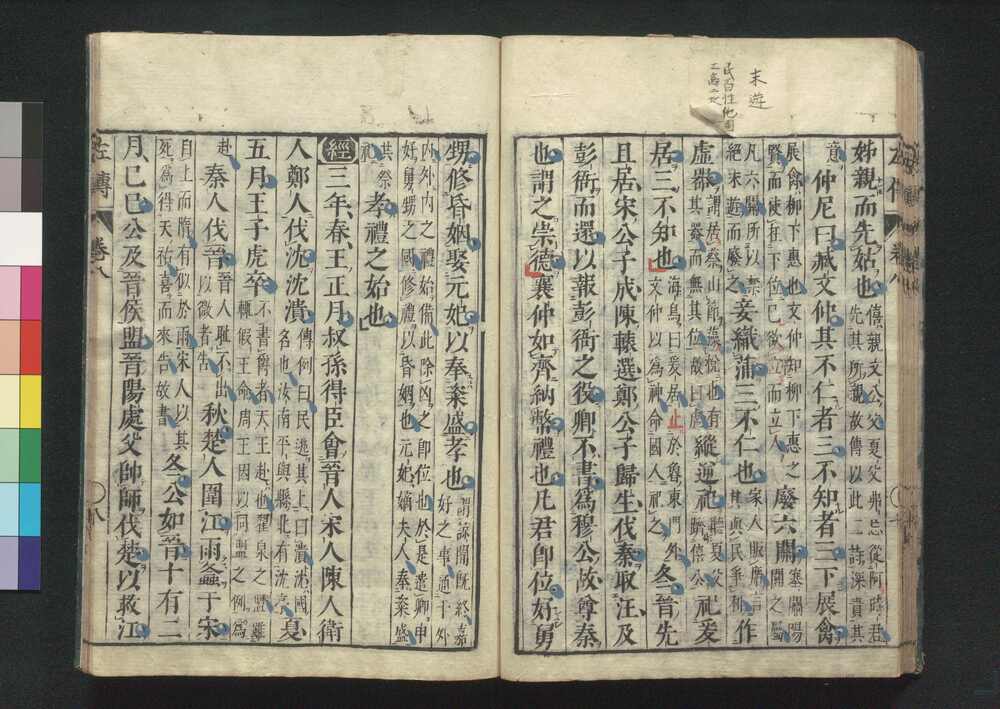 末遊
姊親而先姑也僖親文公父夏父弗忌從阿時君
先其所親故傳以此二詩深責其
意仲尼曰臧文仲其不仁者三不知者三下展禽
展禽柳下惠也文仲知柳下惠之
賢而使在下位己欲立而立人廢六關塞關陽
關之屬
凡六關所以禁
絕末遊而廢之妾織蒲三不仁也家人販席言
其與民爭利作
虛器謂居蔡山節藻梲也有
其器而無其位故曰虛縱逆祀聽夏父
躋僖公祀爰
居三不知也海鳥曰爰居止於魯東門外
文仲以為神命國人祀之冬晉先
且居宋公子成陳轅選鄭公子歸生伐秦取汪及
彭衙而還以報彭衙之役卿不書為穆公故尊秦
也謂之崇德襄仲如齊納幣禮也凡君即位好舅
甥修昏姻娶元妃以奉粢盛孝也謂諒闇既終嘉
好之事通于外
內外內之禮始備此除凶之即位也於是遣卿申
好舅甥之國修禮以昏姻也元妃嫡夫人奉粢盛
共祭
祀孝禮之始也
經三年春王正月叔孫得臣會晉人宋人陳人衛
人鄭人伐沈沈潰傳例曰民逃其上曰潰沈國
名也汝南平輿縣北有沈亭夏
五月王子虎卒不書爵者天王赴也翟泉之盟雖
輒假王命周王因以同盟之例為
赴秦人伐晉晉人恥不出
以微者告秋楚人圍江雨螽于宋
自上而隋有似於雨宋人以其
死為得天祐喜而來告故書冬公如晉十有二
月己巳公及晉侯盟晉陽處父帥師伐楚以救江
左傳
卷八
八